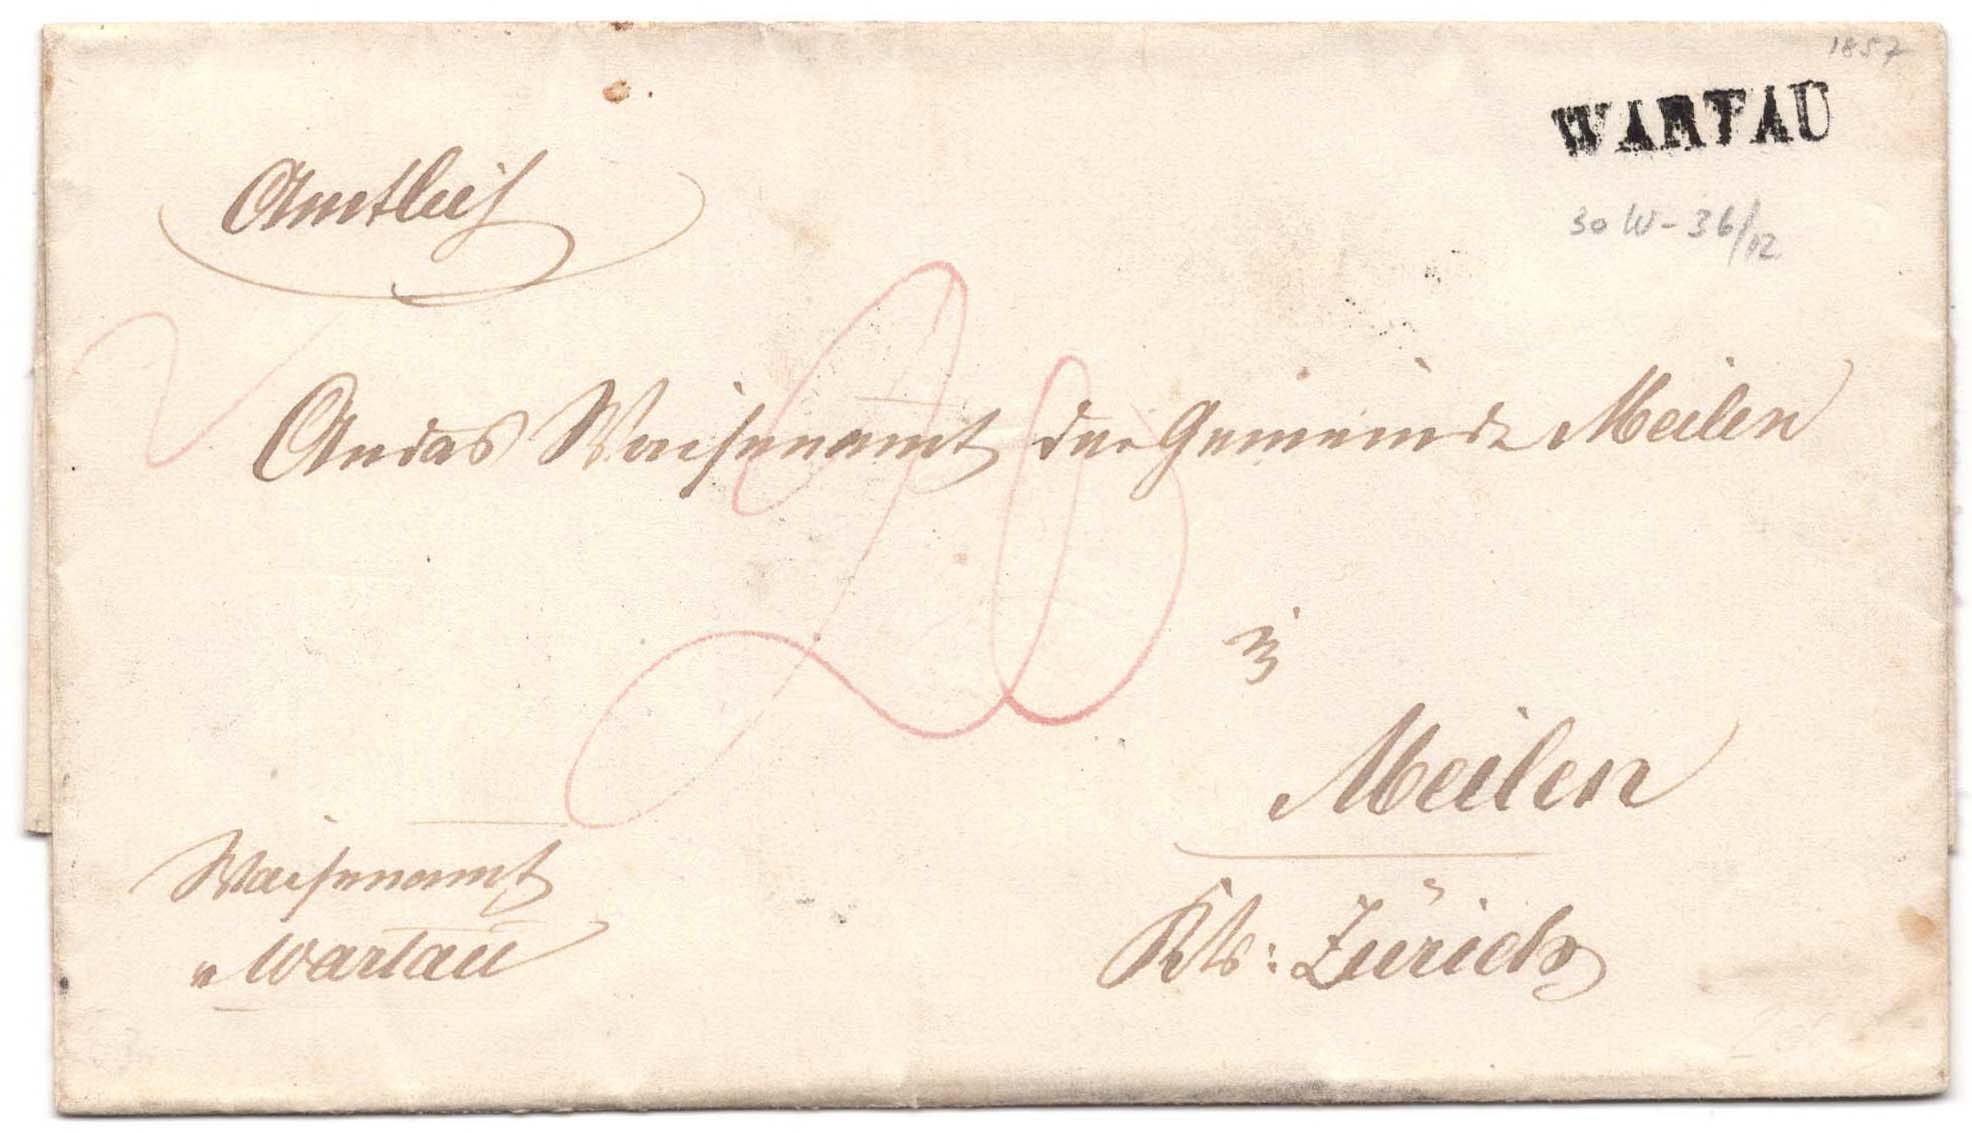 1857
WARTAU
30 W - 36/12
Amtlich
An das Waisenamt der Gemeinde Meilen
20
in
Meilen
Kts: Zürich
Waisenamt
Wartau